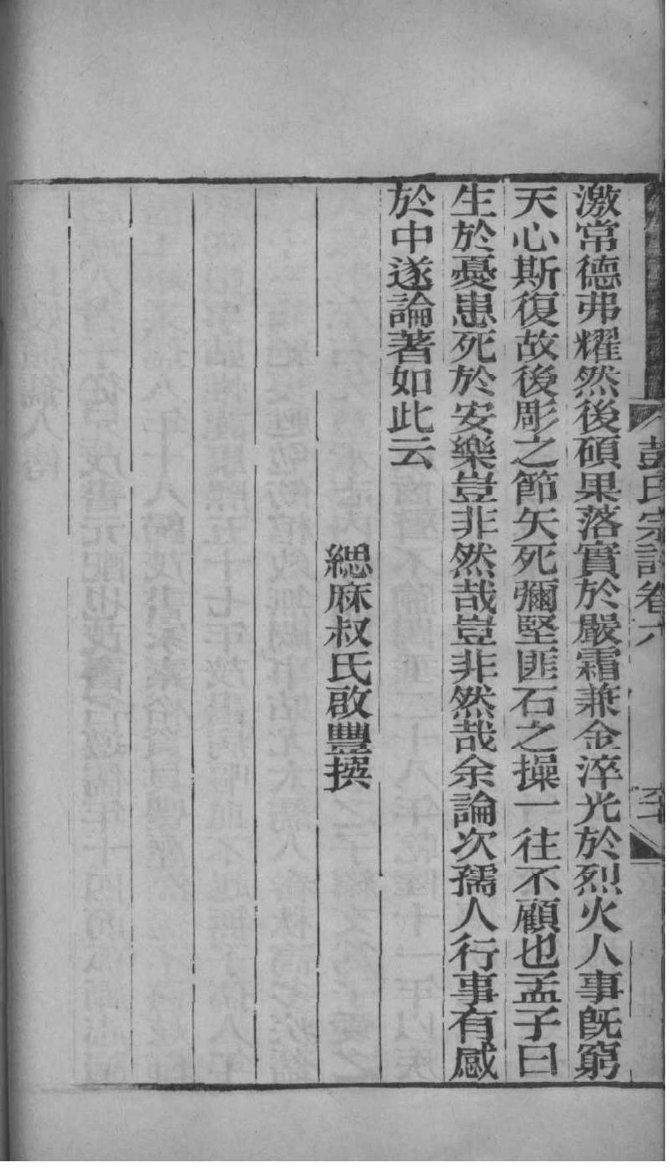 彭氏宗譜卷六
激常德弗耀然後碩果落實於嚴霜兼金淬光於烈火人事旣窮
天心斯復故後彫之節矢死彌堅匪石之操一往不顧也孟子曰
生於憂患死於安樂豈非然哉豈非然哉余論次孺人行事有感
於中遂論著如此云
緦麻叔氏啟豐撰